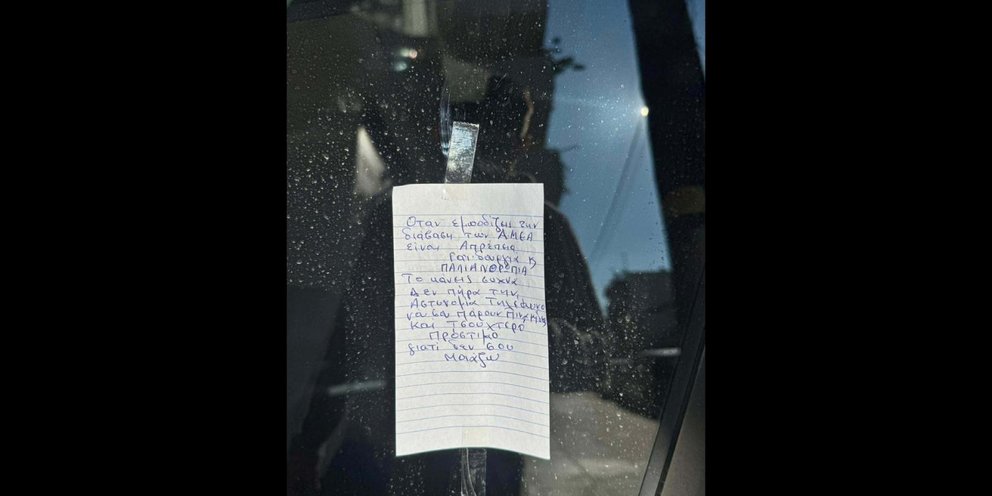 Οταν εμποδίζης την
διάβαση των ΑΜΕΑ
είναι Απρέπεια
Γαιδουργιά κ
ΠΑΛΙΑΝΘΡΩΠΙΑ
Το κάνεις συχνα
Δεν πήρα την
Αστυνομία Τηλέφωνο
να σα πάρουν Πινακίδες
και Τσουχτερό
Πρόστιμο
γιατί δεν σου
Μοιάζω